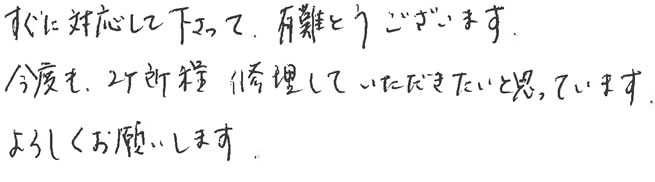 すぐに対応して下さって、有難とうございます.
今度も、2ケ所程修理していただきたいと思っています.
よろしくお願いします.